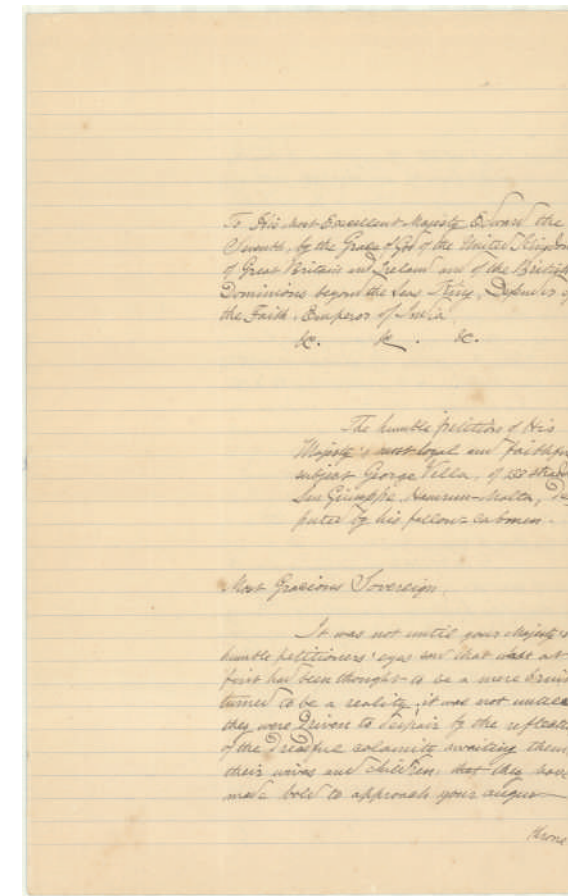 To His Most Excellent Majesty Edward the
Seventh, by the Grace of God of the United Kingdom
of Great Britain and Ireland and of the British
Dominions beyond the Seas King, Defender of
the Faith, Emperor of India,
&c. &c. &c.
The humble petition of His
Majesty's most loyal and faithfu
subject George Villa, of 120 Strada
San Giuseppe, Hamrun-Malta, De
puted by his fellow-cabmen.
Most Gracious Sovereign,
It was not until your Majesty's
humble petitioners' eyes saw that what at
first had been thought to be a mere
turned to be a reality; it was not until
they were driven to despair by the
of the dreadful calamity awaiting them,
their wives and children, that they have
made bold to approach your august
throne